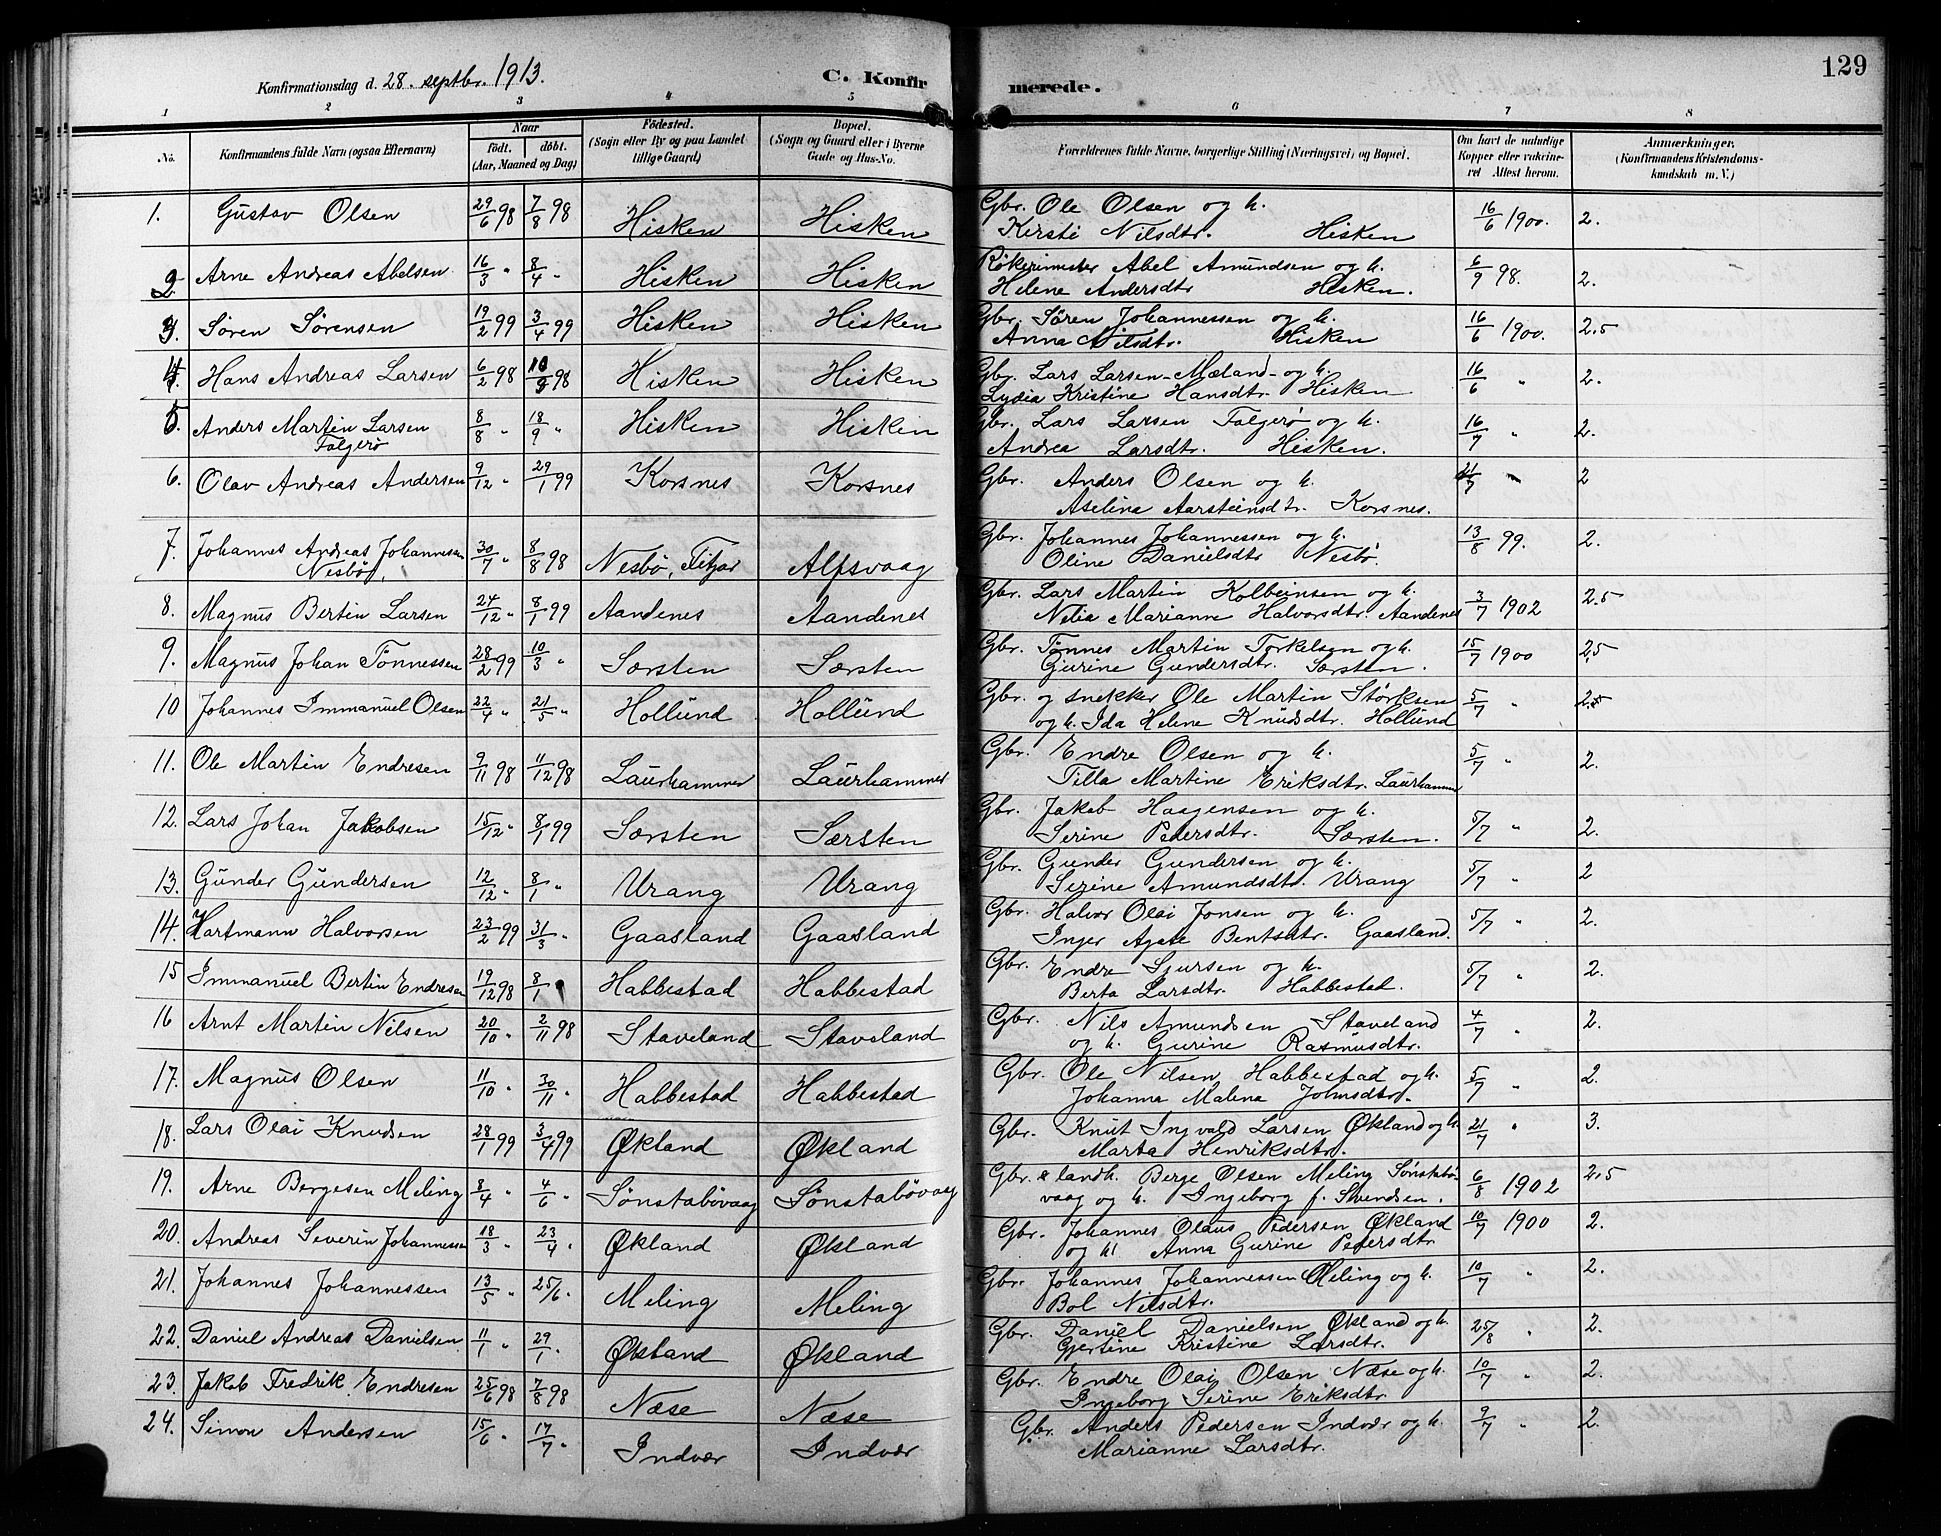 129
Konfirmationsdag d. 28. septbr. 1913.
C. Konfirmerede.
1 2 3 4 5 6 7 8
No. Konfirmandens fulde Navn (ogsaa Efternavn) Naar födt. döbt. (Aar, Maaned og Dag) Födested. (Sogn eller By og paa Landet tillige Gaard) Bopæl. (Sogn og Gaard eller i Byerne Gade og Hus-No. Forældrenes fulde Navne, borgerlige Stilling (Næringsvei) og Bopæl. Om havt de naturlige Kopper eller vakcineret Attest herom. Anmærkninger. (Konfirmandens Kristendomskundskab m. V.)
1. Gustav Olsen 29/6 98 7/8 98 Hisken Hisken Gbr. Ole Olsen og h. 16/6 1900. 2.
Kersti Nilsdtr. Hisken
2 Arne Andreas Abelsen 16/3 " 8/4 " Hisken Hisken Abel Amundsen og h. 6/9 98. 2.
Helene Andersdtr Hisken.
3. Sören Sörensen 19/2 99 3/4 99 Hisken Hisken Gbr. Sören Johannessen og h. 16/6 1900. 2.5
Anna Nilsdtr. Hisken
4. Hans Andreas Larsen 6/2 98 98 Hisken Hisken Gbr. Lars Larsen-Mæland- og h. 16/6 " 2.
Lydia Kristine Hansdtr. Hisken
5. Anders Martin Larsen 8/8 " 18/9 " Hisken Hisken Gbr. Lars Larsen Folgerö og h. 16/7 " 2.
Folgerö Andrea Larsdtr. Hisken.
6. Olav Andreas Andersen 9/12 " 29/1 99 Korsnes Korsnes Gbr. Anders Olsen og h. 21/7 " 2
Aselina Aarsteinsdtr. Korsnes.
7. Johannes Andreas Johannessen 30/7 " 8/8 98 Nesbö, Fitjar Alfsvaag Gbr. Johannes Johannessen og h. 13/8 99. 2.
Nesbö, Oline Danielsdtr Nesbö.
8. Magnus Bertin Larsen 24/12 " 8/1 99 Aandenes Aandenes Gbr. Lars Martin Kolbeinsen og h. 3/7 1902 2.5
Nilia Marianne Halvorsdtr. Aandenes
9. Magnus Johan Tönnessen 28/2 99 10/3 " Særsten Særsten Gbr. Tönnes Martin Torkelsen og h. 15/7 1900 2,5
Gurine Gundersdtr. Særsten.
10 Johannes Immanuel Olsen 22/4 " 21/5 " Hollund Hollund Gbr. og snekker Ole Martin Störksen 5/7 " 2.5
og h. Ida Helene Knudsdtr. Hollund
11. Ole Martin Endresen 9/11 98 11/12 98 Laurhammer Laurhammer Gbr. Endre Olsen og h. 5/7 " 2.
Tilla Martine Eriksdtr. Laurhammer
12. Lars Johan Jakobsen 15/12 " 8/1 99 Særsten Særsten Gbr. Jakob Haagensen og h. 5/7 " 2.
Serine Pedersdtr. Særsten.
13. Gunder Gundersen 12/12 " 8/1 " Urang Urang Gbr. Gunder Gundersen og h. 5/7 " 2
Serine Amundsdtr. Urang
14. Hartmann Halvorsen 23/2 99 31/3 " Gaasland Gaasland Gbr. Halvor Olai Jonsen og h. 5/7 " 2.
Inger Agate Bentsdtr. Gaasland.
15 Immanuel Bertin Endresen 19/12 98 8/1 Habbestad Habbestad Gbr. Endre Sjursen og h. 5/7 " 2.
Berta Larsdtr. Habbestad.
16 Arnt Martin Nilsen 20/10 " 2/11 98 Staveland Staveland Gbr. Nils Amundsen Staveland 4/7 " 2.
og h. Gurine Rasmusdtr.
17. Magnus Olsen 11/10 " 30/11 " Habbestad Habbestad Gbr. Ole Nilsen Habbestad og h. 5/7 " 2.
Johanna Malena Johnsdtr.
18. Lars Olai Knudsen 28/1 99 3/4 99 Økland Økland Gbr. Knut Ingvald Larsen Økland og h. 21/7 " 3.
Marta Henriksdtr.
19. Arne Bergesen Meling 8/4 " 4/6 " Sönstabövaag Sönstabövaag Gbr. & landh. Berge Olsen Meling Sönstabö- 6/8 1902 2.5
vaag og h. Ingeborg f. Svendsen.
20. Andreas Severin Johannessen 18/3 " 23/4 " Økland Økland Gbr. Johannes Olaus Pedersen Økland 10/7 1900 2.
og h. Anna Gurine Pedersdtr
21. Johannes Johannessen 13/5 " 25/6 " Meling Meling Gbr. Johannes Johannessen Meling og h. 10/7 " 2.
Bol Nilsdtr.
22. Daniel Andreas Danielsen 11/1 " 29/1 " Økland Økland Gbr. Daniel Danielsen Økland og h. 25/8 " 2.
Gjertine Kristine Larsdtr.
23. Jakob Fredrik Endresen 25/6 98 7/8 98 Næse Næse Gbr. Endre Olai Olsen Næse og h. 10/7 " 2.
Ingeborg Serine Eriksdtr.
24. Simon Andersen 15/6 " 17/7 " Indvær Indvær Gbr. Anders Pedersen Indvær og h. 9/7 " 2.
Marianne Larsdtr.